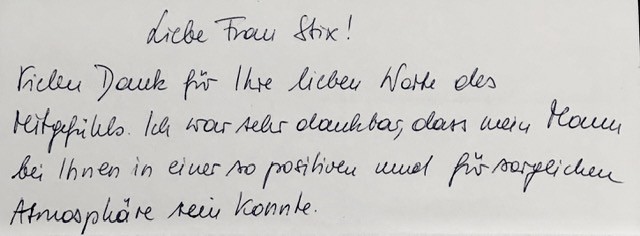 Liebe Frau Stix!
Vielen Dank für Ihre lieben Worte des
Mitgefühls. Ich war sehr dankbar, dass mein Mann
bei Ihnen in einer so positiven und fürsorglichen
Atmosphäre sein konnte.